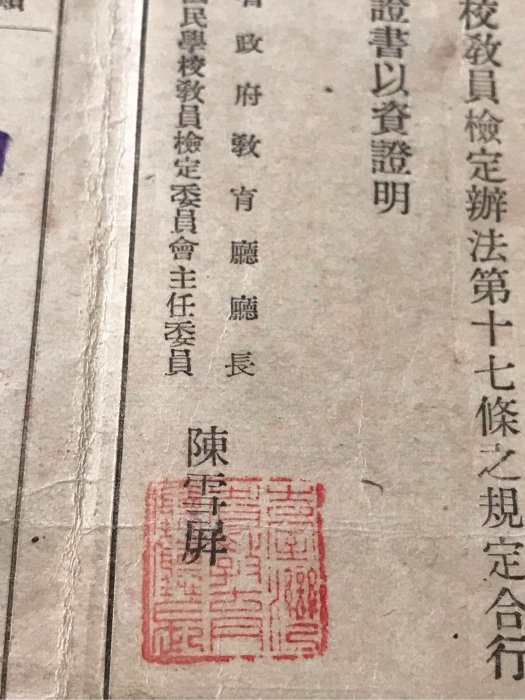 校教員檢定辦法第十七條之規定合行
證書以資證明
省政府教育廳廳長
國民學校教員檢定委員會主任委員
陳雪屏